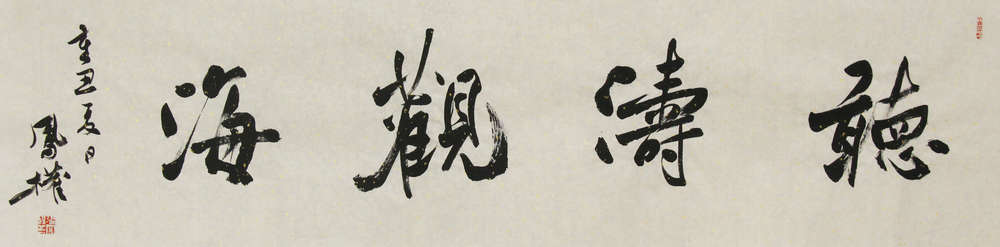 聽濤觀海
辛丑夏日
鳳權